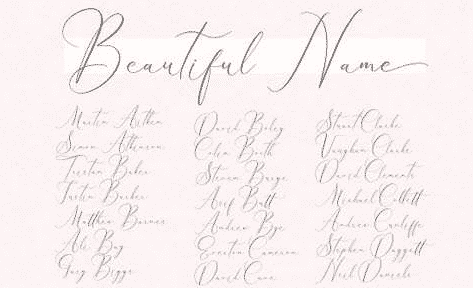 Beautiful Name
Martin Aitken
Simon Atkinson
Tristan Baker
Justin Barker
Matthew Barnes
Ale Bay
Gary Bigge
David Boley
Colin Booth
Steven Barge
Asif Butt
Andrew Bye
Everton Cameron
David Cane
Stuart Clarke
Vaughan Clarke
David Clements
Michael Collett
Andrew Cunliffe
Stephen Daggett
Neil Daniels